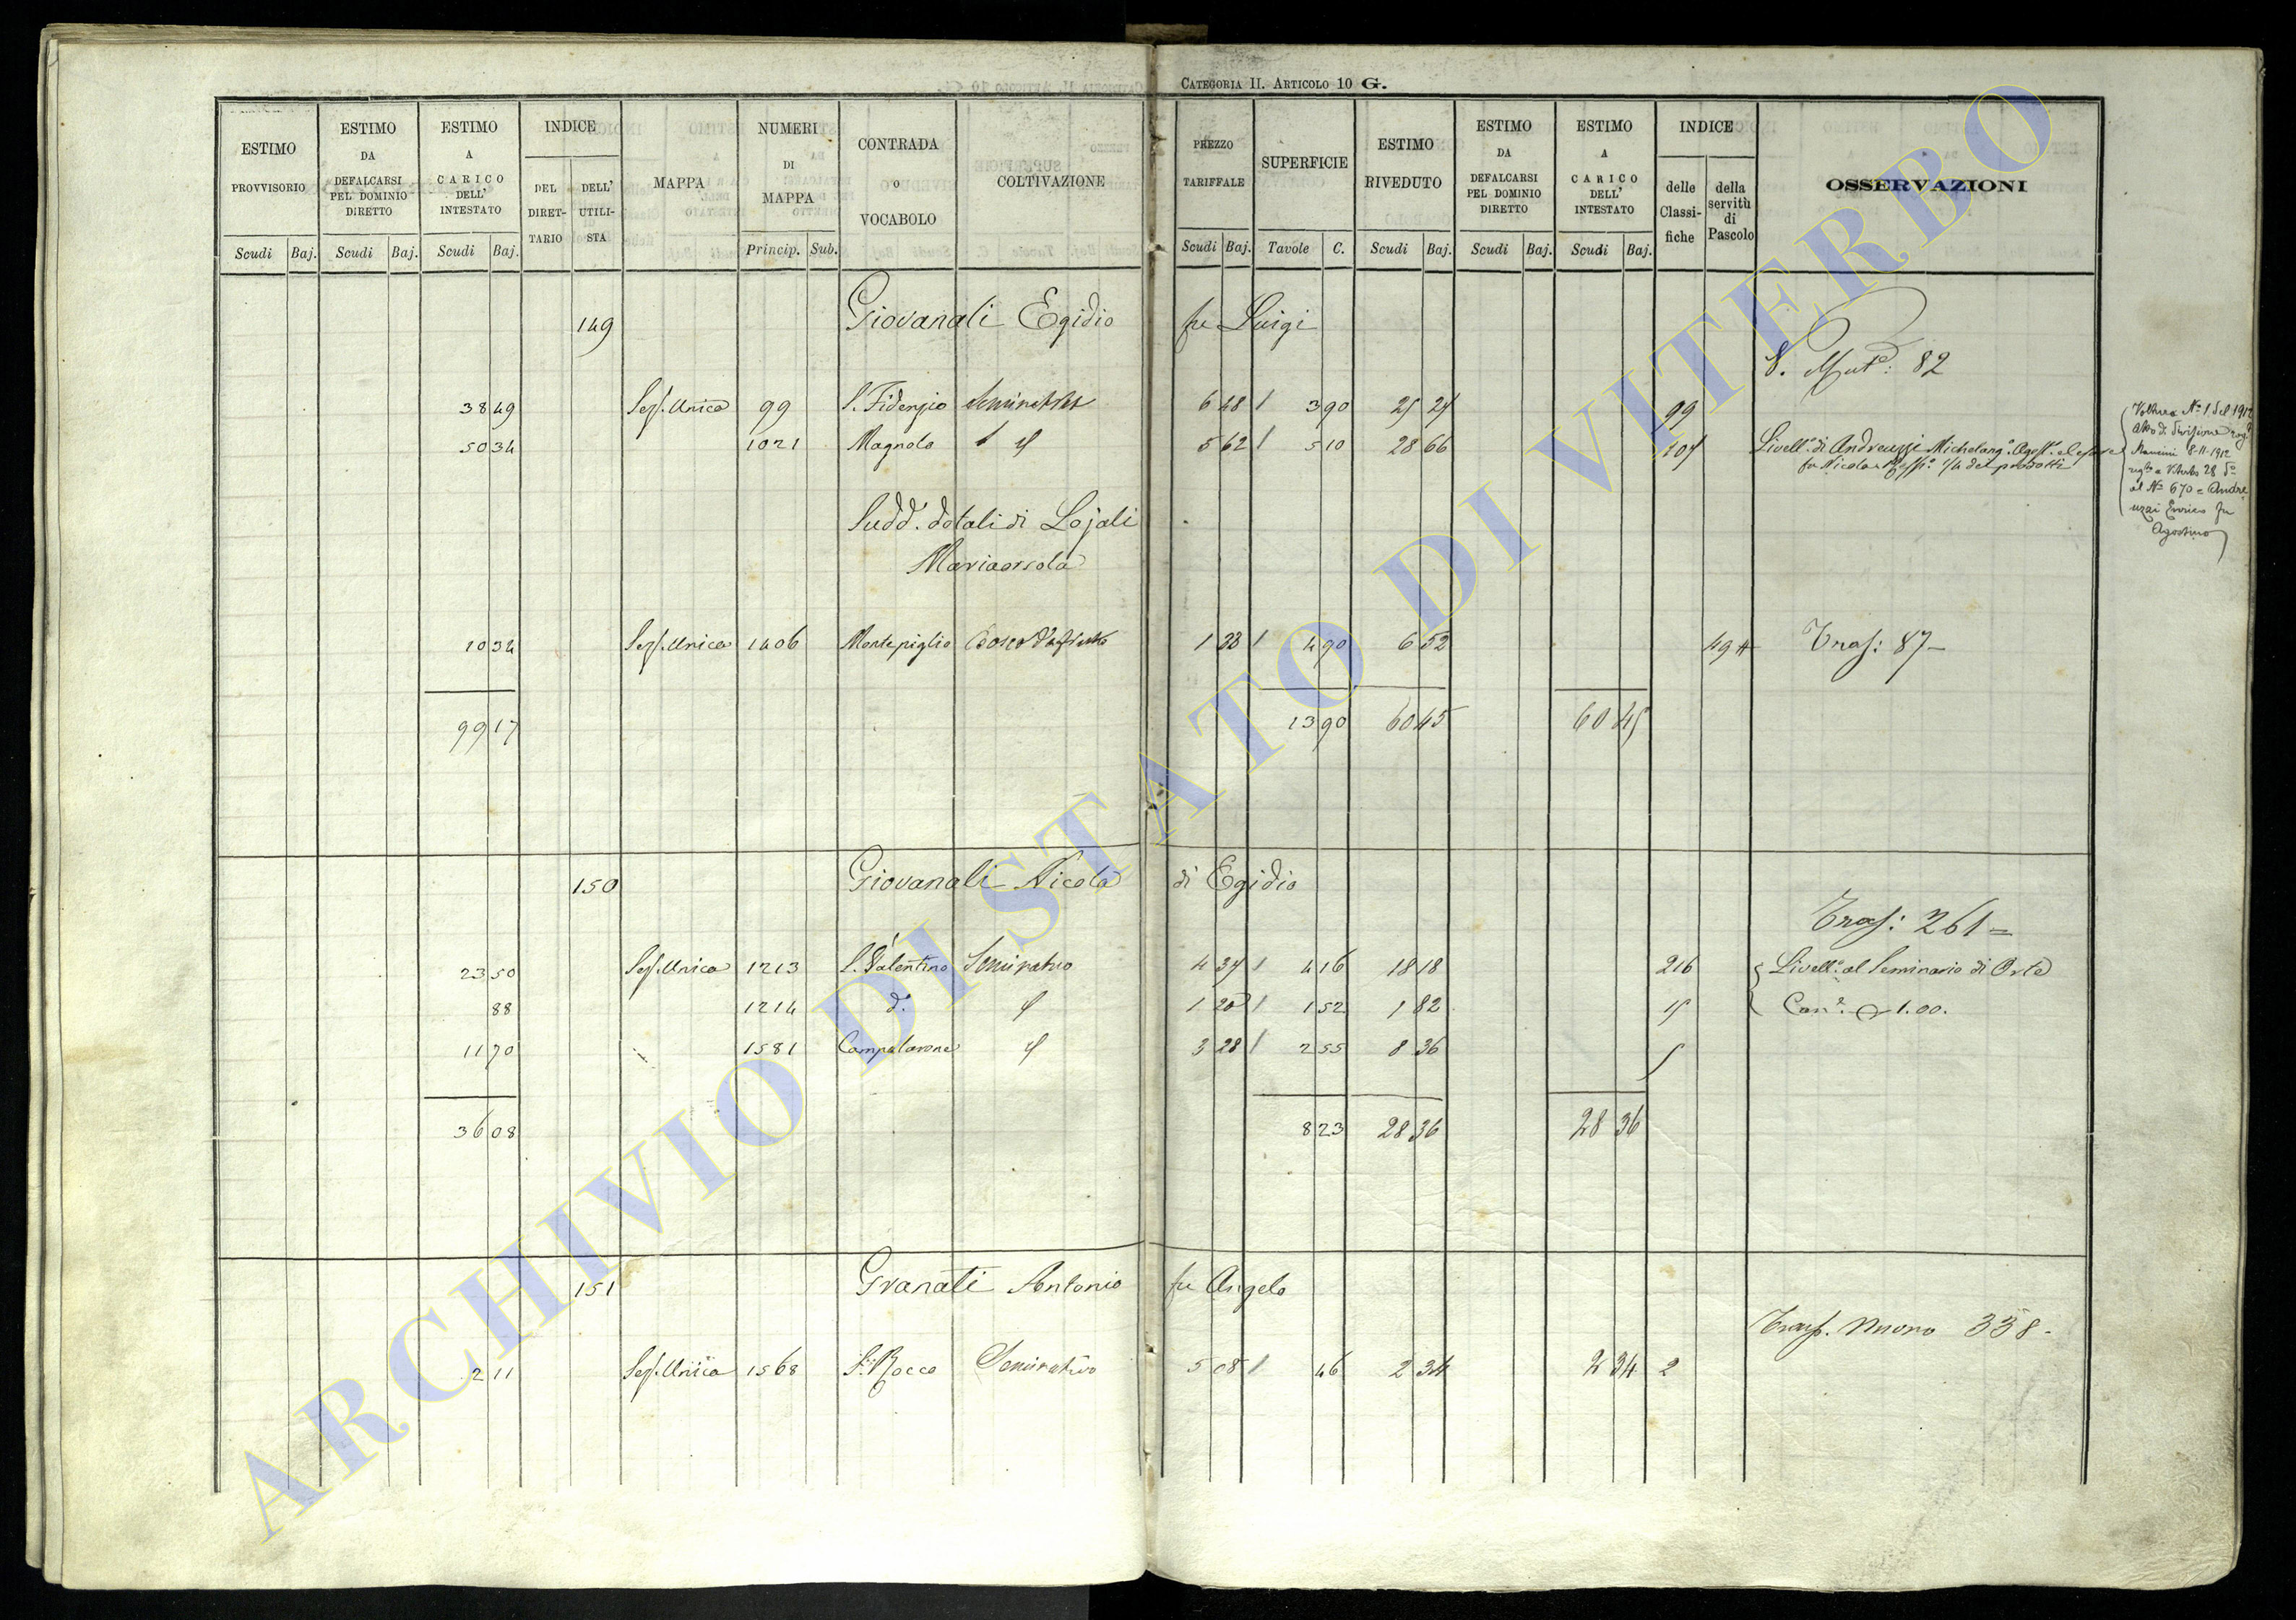 CATEGORIA II. ARTICOLO 10 G.
ESTIMO PROVVISORIO Scudi Baj.
ESTIMO DA DEFALCARSI PEL DOMINIO DIRETTO Scudi Baj.
ESTIMO A CARICO DELL' INTESTATO Scudi Baj.
INDICE DEL DIRETTARIO DELL' UTILISTA
MAPPA
NUMERI DI MAPPA Princip. Sub.
CONTRADA o VOCABOLO
COLTIVAZIONE
PREZZO TARIFFALE Scudi Baj.
SUPERFICIE Tavole C.
ESTIMO RIVEDUTO Scudi Baj.
ESTIMO DA DEFALCARSI PEL DOMINIO DIRETTO Scudi Baj.
ESTIMO A CARICO DELL' INTESTATO Scudi Baj.
INDICE delle Classifiche della servitù di Pascolo
OSSERVAZIONI
149 Giovanali Egidio fu Luigi
S. Mut.e: 82
38 49 Sez. Unica 99 S. Fidenzio Seminativo 6 48 1 3 90 25 27 99
50 34 1021 Magnolo 5 62 1 5 10 28 66 107 Livell.o di Andreuzzi Michelang.o Agost.o
fu Nicola
Voltura No 1 del 1912
Atto di divisione rog.
Mancini 8-11-1912
reg.to a Viterbo 28 do
al No 670 = Andre
uzzi Enrico fu
Agostino
Sudd. dotali di Lojali
Mariaorsola
10 34 Sez. Unica 1406 Montepiglio Bosco d'alto fusto 1 33 1 4 90 6 52 49 Tras: 87
99 17 13 90 60 45 60 45
150 Giovanali Nicola di Egidio
Tras: 261 =
23 50 Sez. Unica 1213 S. Valentino Seminativo 4 37 1 4 16 18 18 216 Livell.o al Seminario di Orte
88 1214 d.o 1 20 1 1 52 1 82 15 Can.e 1.00.
11 70 1581 Campalarone 3 28 1 2 55 8 36
36 08 8 23 28 36 28 36
151 Granati Antonio fu Angelo
Trasp. Nuovo 338-
2 11 Sez. Unica 1568 S. Rocco Seminativo 5 08 1 46 2 34 2 34 2
ARCHIVIO DI STATO DI VITERBO